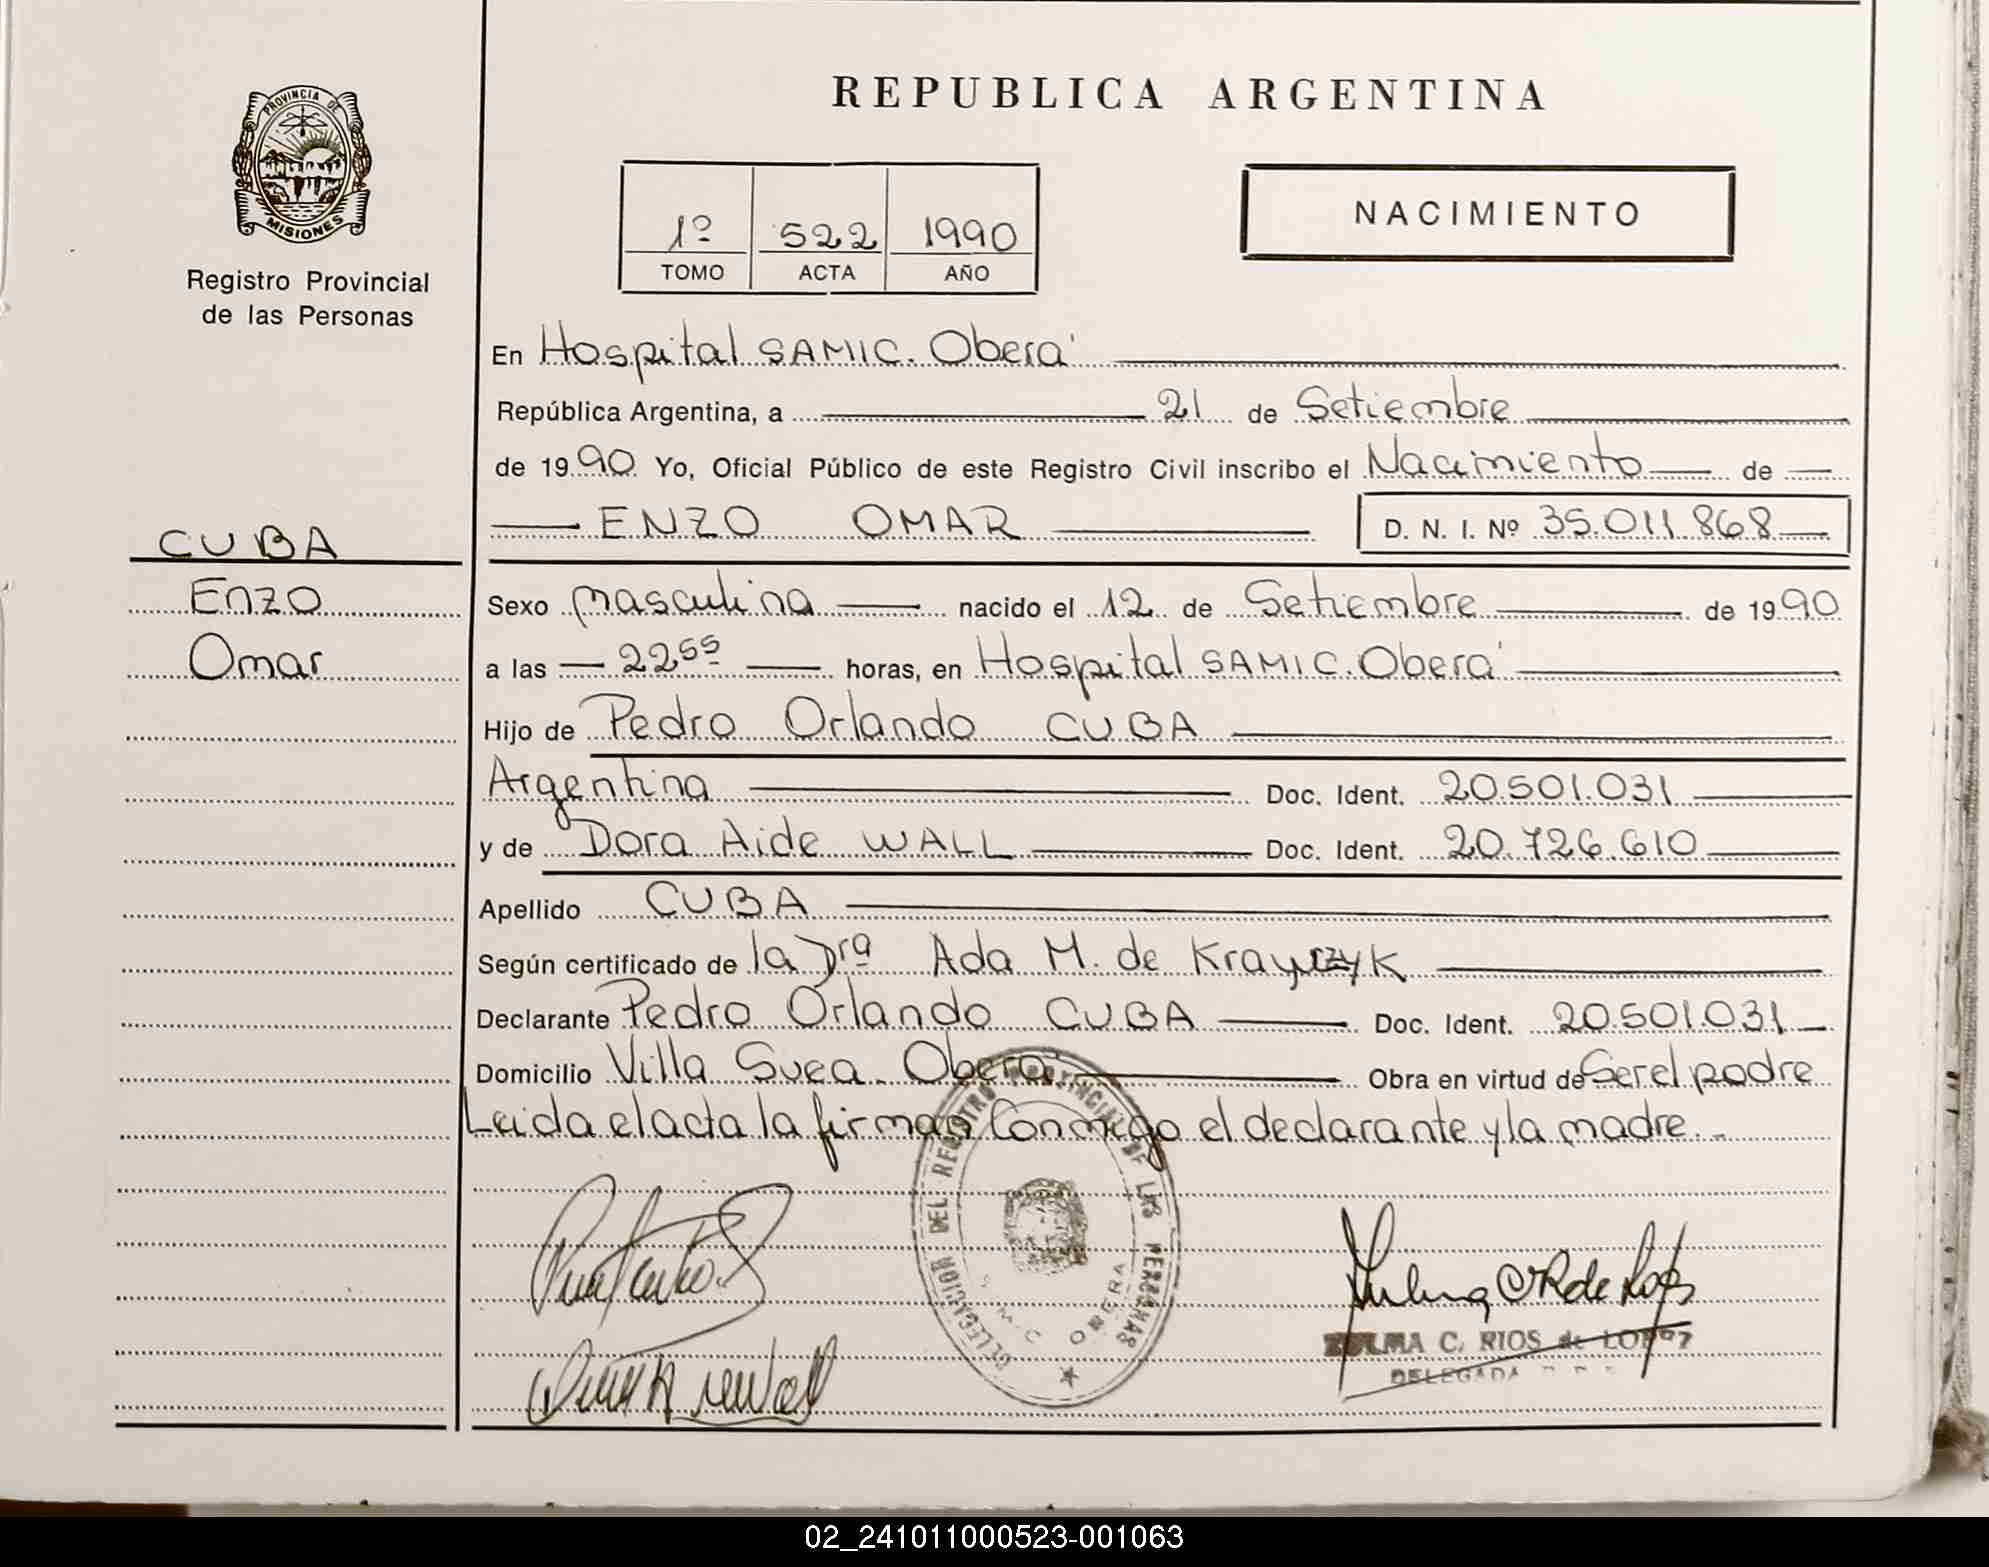 PROVINCIA DE
MISIONES
Registro Provincial
de las Personas
REPUBLICA ARGENTINA
1º 522 1990
TOMO ACTA AÑO
NACIMIENTO
En Hospital SAMIC. Oberá
República Argentina, a 21 de Setiembre
de 1990 Yo, Oficial Público de este Registro Civil inscribo el Nacimiento de
ENZO OMAR D. N. I. Nº 35.011.868
CUBA
Enzo
Omar
Sexo masculino nacido el 12 de Setiembre de 1990
a las 22⁵⁵ horas, en Hospital SAMIC. Oberá
Hijo de Pedro Orlando CUBA
Argentina Doc. Ident. 20.501.031
y de Dora Aide WALL Doc. Ident. 20.726.610
Apellido CUBA
Según certificado de la Drª Ada M. de Krawczyk
Declarante Pedro Orlando CUBA Doc. Ident. 20.501.031
Domicilio Villa Svea. Oberá Obra en virtud de Ser el padre
Leida el acta la firman Conmigo el declarante y la madre.
DELEGACION DEL REGISTRO PROVINCIAL DE LAS PERSONAS
OBERA
ZULMA C. RIOS de LOPEZ
DELEGADA
02_241011000523-001063